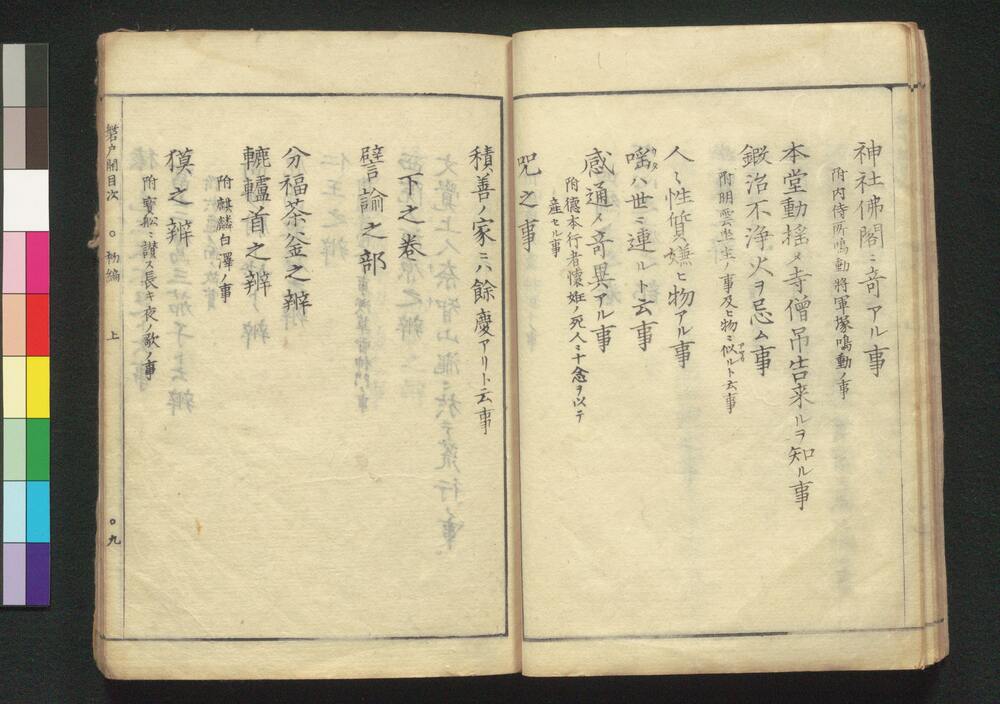 神社佛閣ニ奇アル事
附内侍所鳴動將軍塚鳴動ノ事
本堂動揺〆寺僧吊告来ルヲ知ル事
鍛冶不浄火ヲ忌ム事
附明霊出生ノ事及ヒ物ニ似ルト云事
人〻性質嫌ヒ物アル事
咳ハ世ニ連ルト云事
感通〆奇異アル事
附德本行者懐妊ノ死人ニ十念ヲ以テ
産セル事
咒之事
積善ノ家ニハ餘慶アリト云事
下之巻
譬諭之部
分福茶釜之辨
轆轤首之辨
附麒麟白澤ノ事
獏之辨
附寶舩ニ讃ス長キ夜ノ歌ノ事
磐戸開目次 ○ 初編 上 ○九